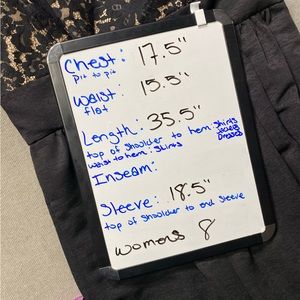 Chest: 17.5"
pit to pit
Waist: 15.5"
flat
Length: 35.5"
top of shoulder to hem: shirts
Dresses
waist to hem: skirts
Inseam:
Sleeve: 18.5"
top of shoulder to end sleeve
Womens 8